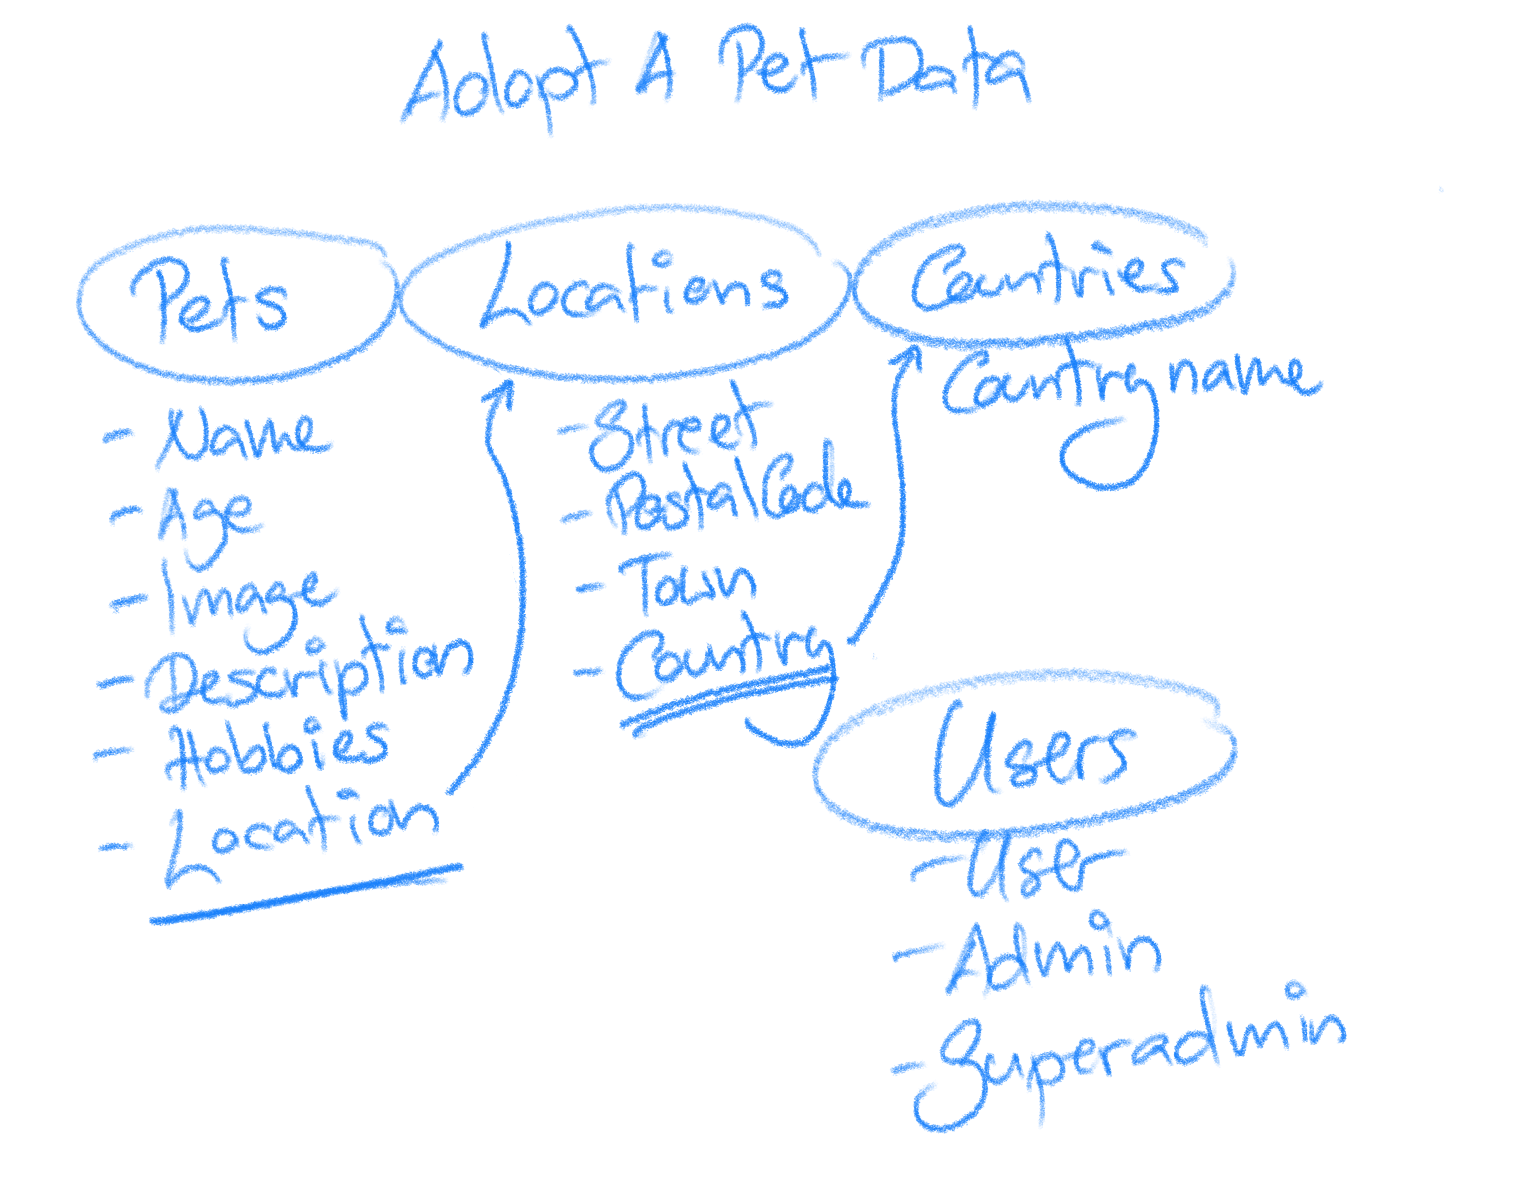 Adopt A Pet Data
Pets
- Name
- Age
- Image
- Description
- Hobbies
- Location
Locations
- Street
- Postal Code
- Town
- Country
Countries
Country name
Users
- User
- Admin
- Superadmin